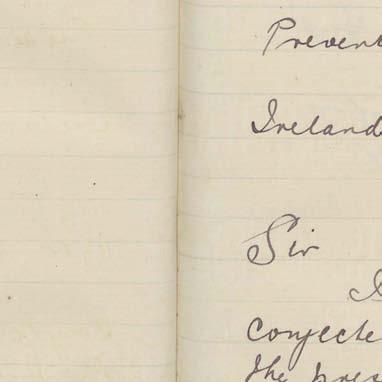 Prevent
Ireland
Sir
I
conjecte
the pres